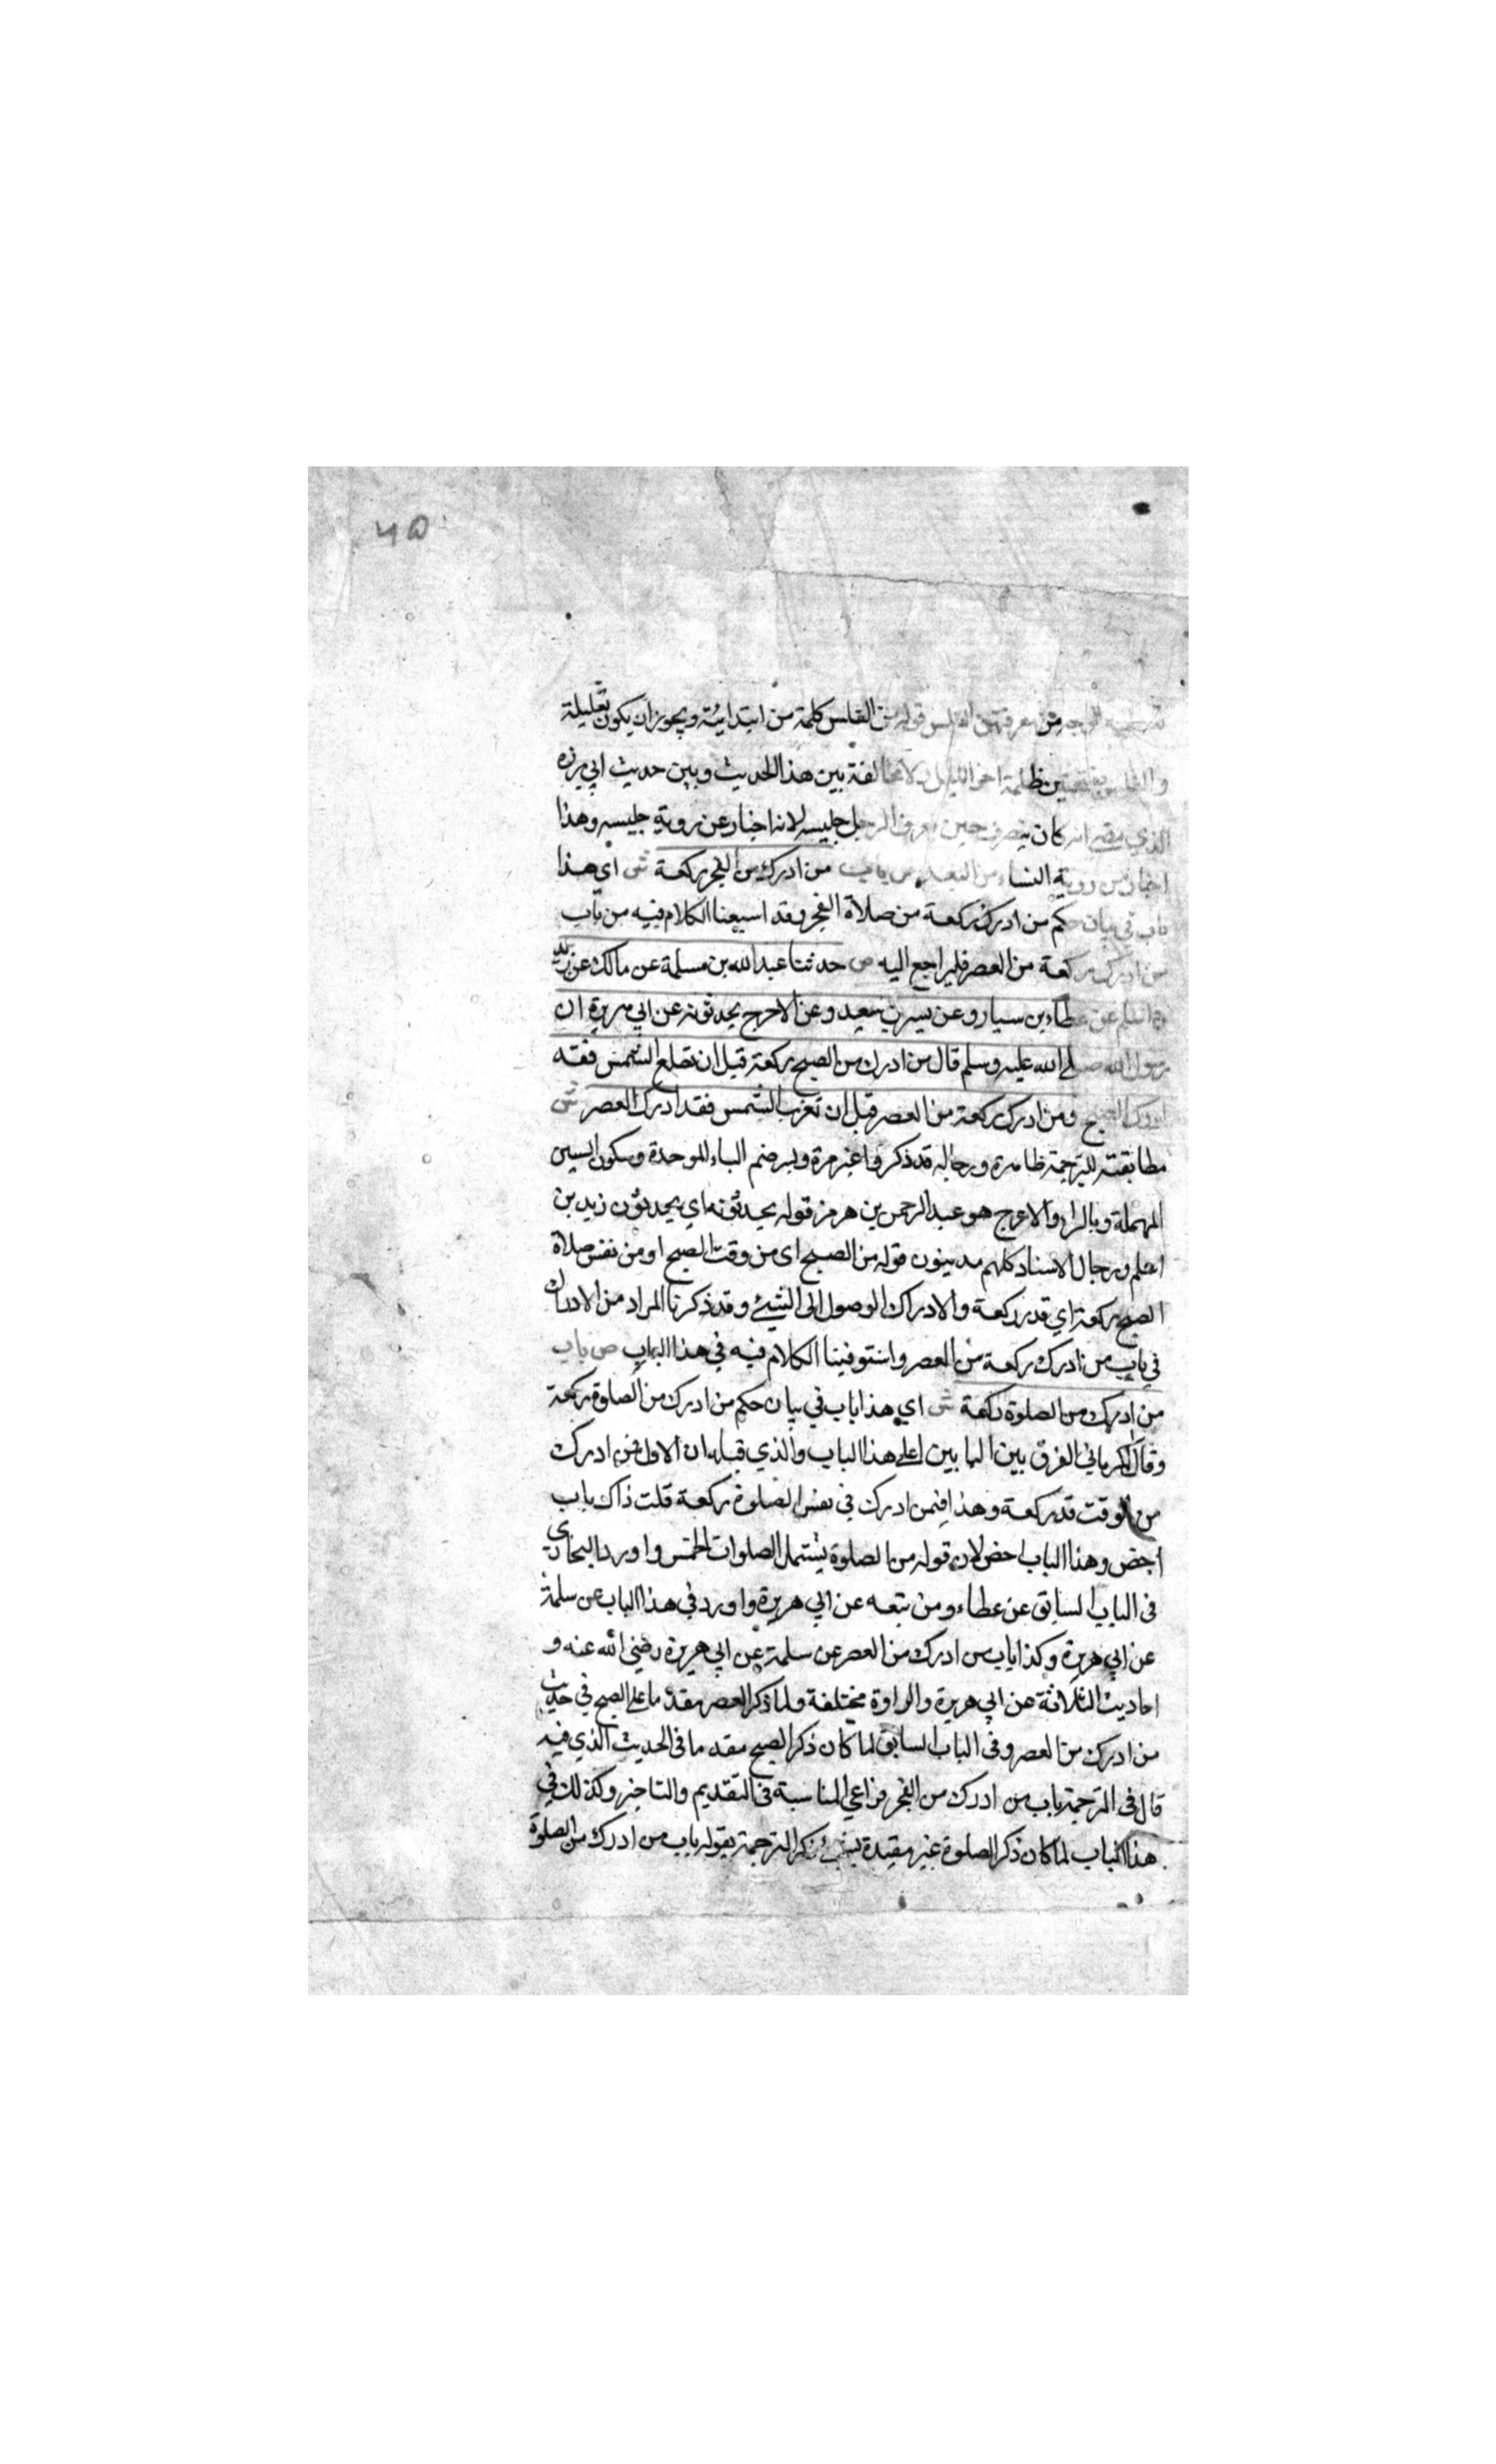 ٧٥
من معرفتهن الغلس قوله من الغلس كلمة من ابتدائية ويجوز ان يكون تعليلة
ظلمة اخر الليل ولا مخالفة بين هذا الحديث وبين حديث ابي برزه
الذي مضى انه كان ينصرف حين يعرف الرجل جليسه لانه اخبار عن روية جليسه وهذا
اخبار عن روية النساء من البعد ص باب من ادرك من الفجر ركعة ش اي هذا
باب في بيان حكم من ادرك ركعة من صلاة الفجر وقد اسبعنا الكلام فيه من باب
من ادرك ركعة من العصر فليراجع اليه ص حدثنا عبد الله بن مسلمة عن مالك عن زيد
بن اسلم عن عطاء بن سيار وعن بسر بن سعيد وعن الاعرج يحدثونه عن ابي هريرة ان
رسول الله صلى الله عليه وسلم قال من ادرك من الصبح ركعة قبل ان تطلع الشمس فقد
ادرك الصبح ومن ادرك ركعة من العصر قبل ان تغرب الشمس فقد ادرك العصر ش
مطابقته للترجمة ظاهرة ورجاله قد ذكروا غير مرة وبسر ضم الباء الموحدة وسكون السين
المهملة وبالراء والاعرج هو عبد الرحمن بن هرمز قوله يحدثونه اي يحدثون زيد بن
اسلم ورجال الاسناد كلهم مدينون قوله من الصبح اى من وقت الصبح او من نفس صلاة
الصبح ركعة اي قدر ركعة والادراك الوصول الى الشيئ وقد ذكرنا المراد من الادراك
في باب من ادرك ركعة من العصر واستوفينا الكلام فيه في هذا الباب ص باب
من ادرك من الصلوة ركعة ش اي هذا باب في بيان حكم من ادرك من الصلوة ركعة
وقال الكرماني الفرق بين البابين اعلى هذا الباب والذي قبله ان الاول فمن ادرك
من الوقت قدر ركعة وهذا فيمن ادرك في نفس الصلوة ركعة قلت ذاك باب
اخص وهذا الباب اخص لان قوله من الصلوة يشتمل الصلوات الخمس واورد البخاري
فى الباب السابق عن عطاء ومن تبعه عن ابي هريرة واورد في هذا الباب عن سلمة
عن ابي هريرة وكذا باب من ادرك من العصر عن سلمة عن ابي هريرة رضي الله عنه و
احاديث الثلاثة عن ابي هريرة والراوة مختلفة ولما ذكر العصر مقدما على الصبح في حديث
من ادرك من العصر وفى الباب السابق لما كان ذكر الصبح مقدما فى الحديث الذي فيه
قال فى الترجمة باب من ادرك من الفجر فراعي المناسبة فى التقديم والتاخير وكذلك في
هذا الباب لما كان ذكر الصلوة غير مقيدة بشئ ذكر الترجمة بقوله باب من ادرك من الصلوة